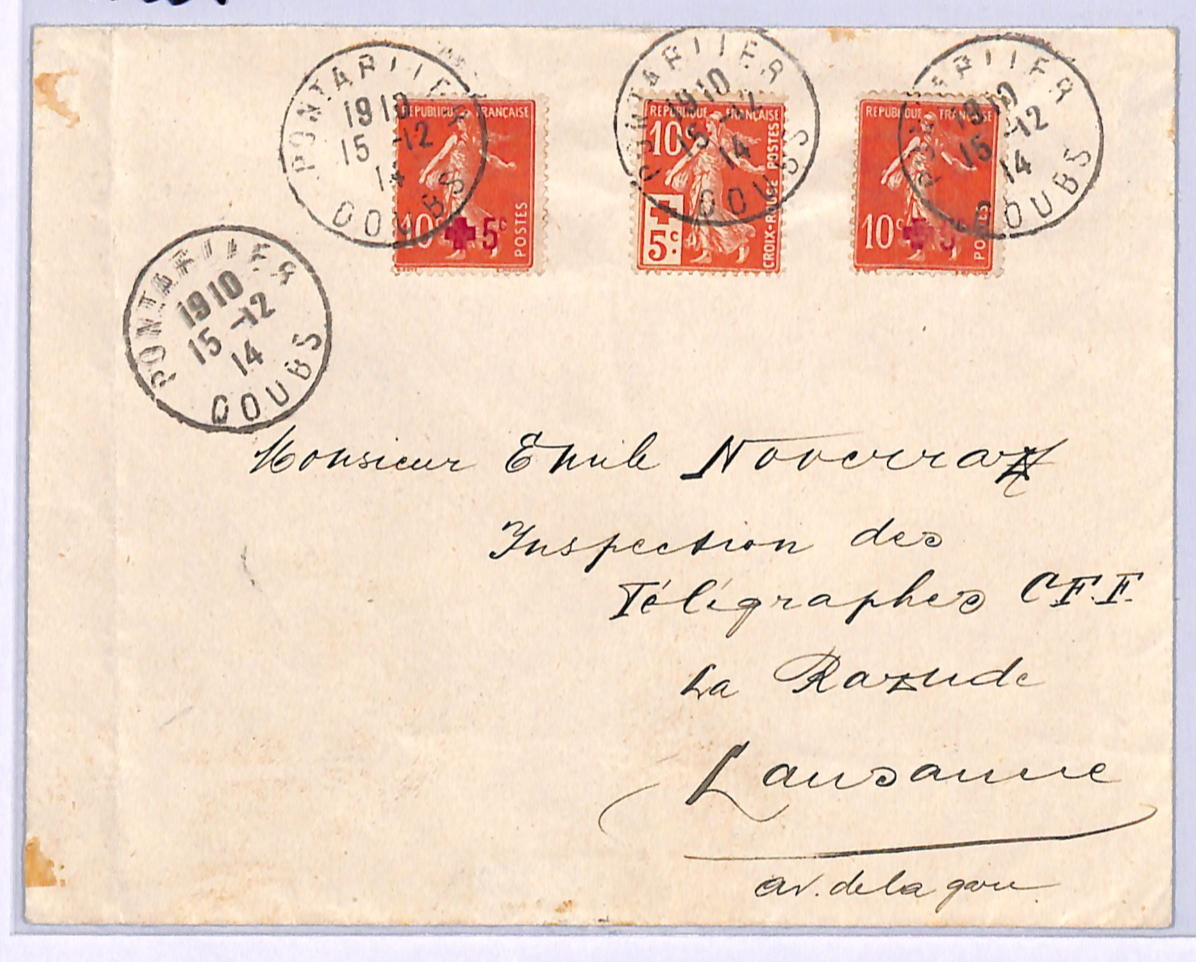 PONTARLIER
1910
15 -12
14
DOUBS
REPUBLIQUE FRANÇAISE
10
5c
POSTES
PONTARLIER
1910
15 -12
14
DOUBS
REPUBLIQUE FRANÇAISE
10c
5c
CROIX-ROUGE POSTES
PONTARLIER
1910
15 -12
14
DOUBS
REPUBLIQUE FRANÇAISE
10c
5c
POSTES
PONTARLIER
1910
15 -12
14
DOUBS
Monsieur Emile Noverraz
Inspection des
Télégraphes C.F.F.
La Razude
Lausanne
av. de la gare